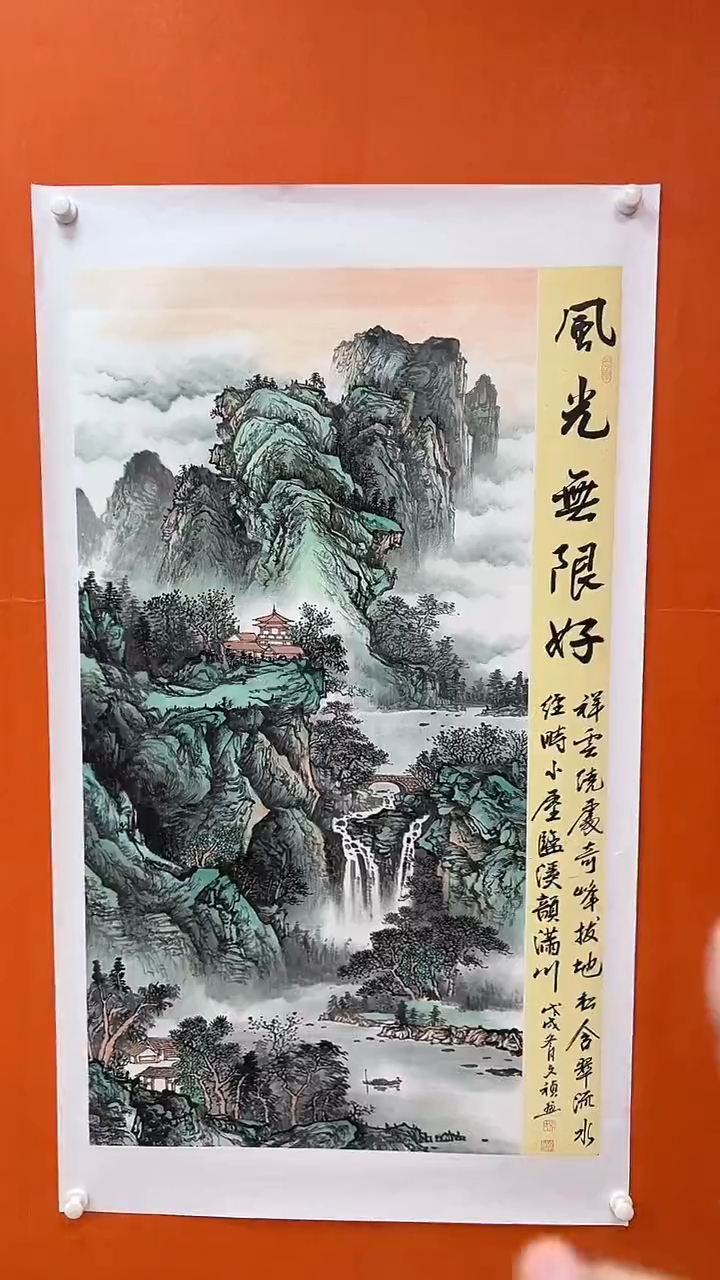 風光無限好
祥雲繞處奇峰拔地松含翠流水
經時小屋臨溪韻滿川
戊戌冬月文禎画